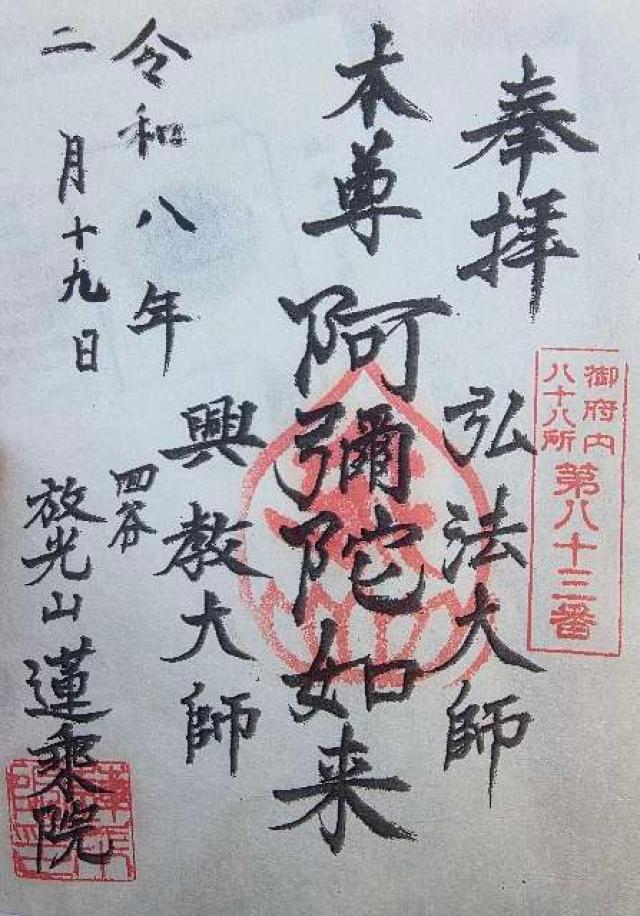 奉拝
御府内
八十八所
第八十三番
弘法大師
本尊
阿彌陀如来
興教大師
令和八年
二月十九日
四谷
放光山蓮乘院